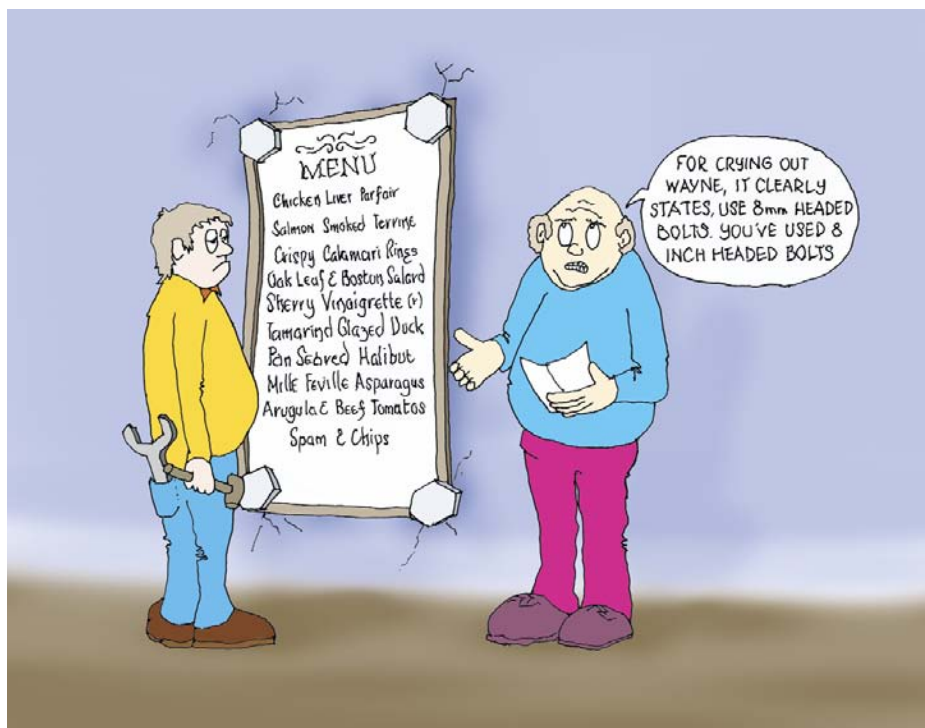 MENU
Chicken Liver Parfair
Salmon Smoked Terrine
Crispy Calamari Rings
Oak Leaf & Boston Salard
Sherry Vinaigrette (v)
Tamarind Glazed Duck
Pan Seared Halibut
Mille Feville Asparagus
Arugula & Beef Tomatos
Spam & Chips
FOR CRYING OUT
WAYNE, IT CLEARLY
STATES, USE 8mm HEADED
BOLTS. YOU'VE USED 8
INCH HEADED BOLTS